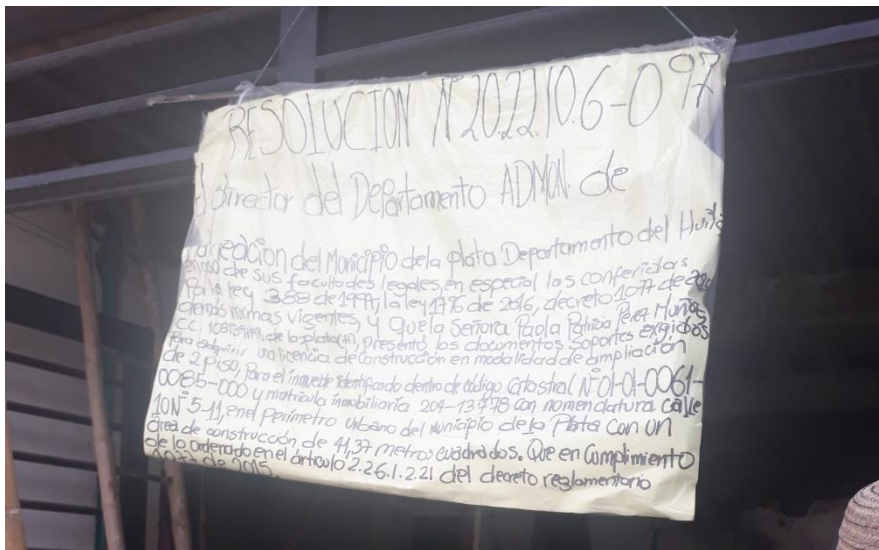 RESOLUCION N° 20.22.10.6-097
El Director del Departamento ADMON. de
del Municipio de la plata Departamento del Huila
en uso de sus facultades legales, en especial las conferidas
Por la ley 388 de 1997, la ley 1796 de 2016, decreto 1077 de
demás normas vigentes, y Que la Señora Paola Patricia Perez Muñoz
CC. de la plata (H), presentó los documentos soportes exigidos
Para adquirir una licencia de construcción en modalidad de ampliación
de 2 piso, Para el inmueble identificado dentro de código Catastral N° 01-01-0061-
0085-000 y matricula inmobiliaria 204-13778 con nomenclatura calle
10 N° 5-11, en el perímetro urbano del Municipio de la Plata con un
área de construcción de 41,37 metros cuadrados. Que en Cumplimiento
de lo ordenado en el artículo 2.2.6.1.2.2.1 del decreto reglamentario
1077 de 2015.